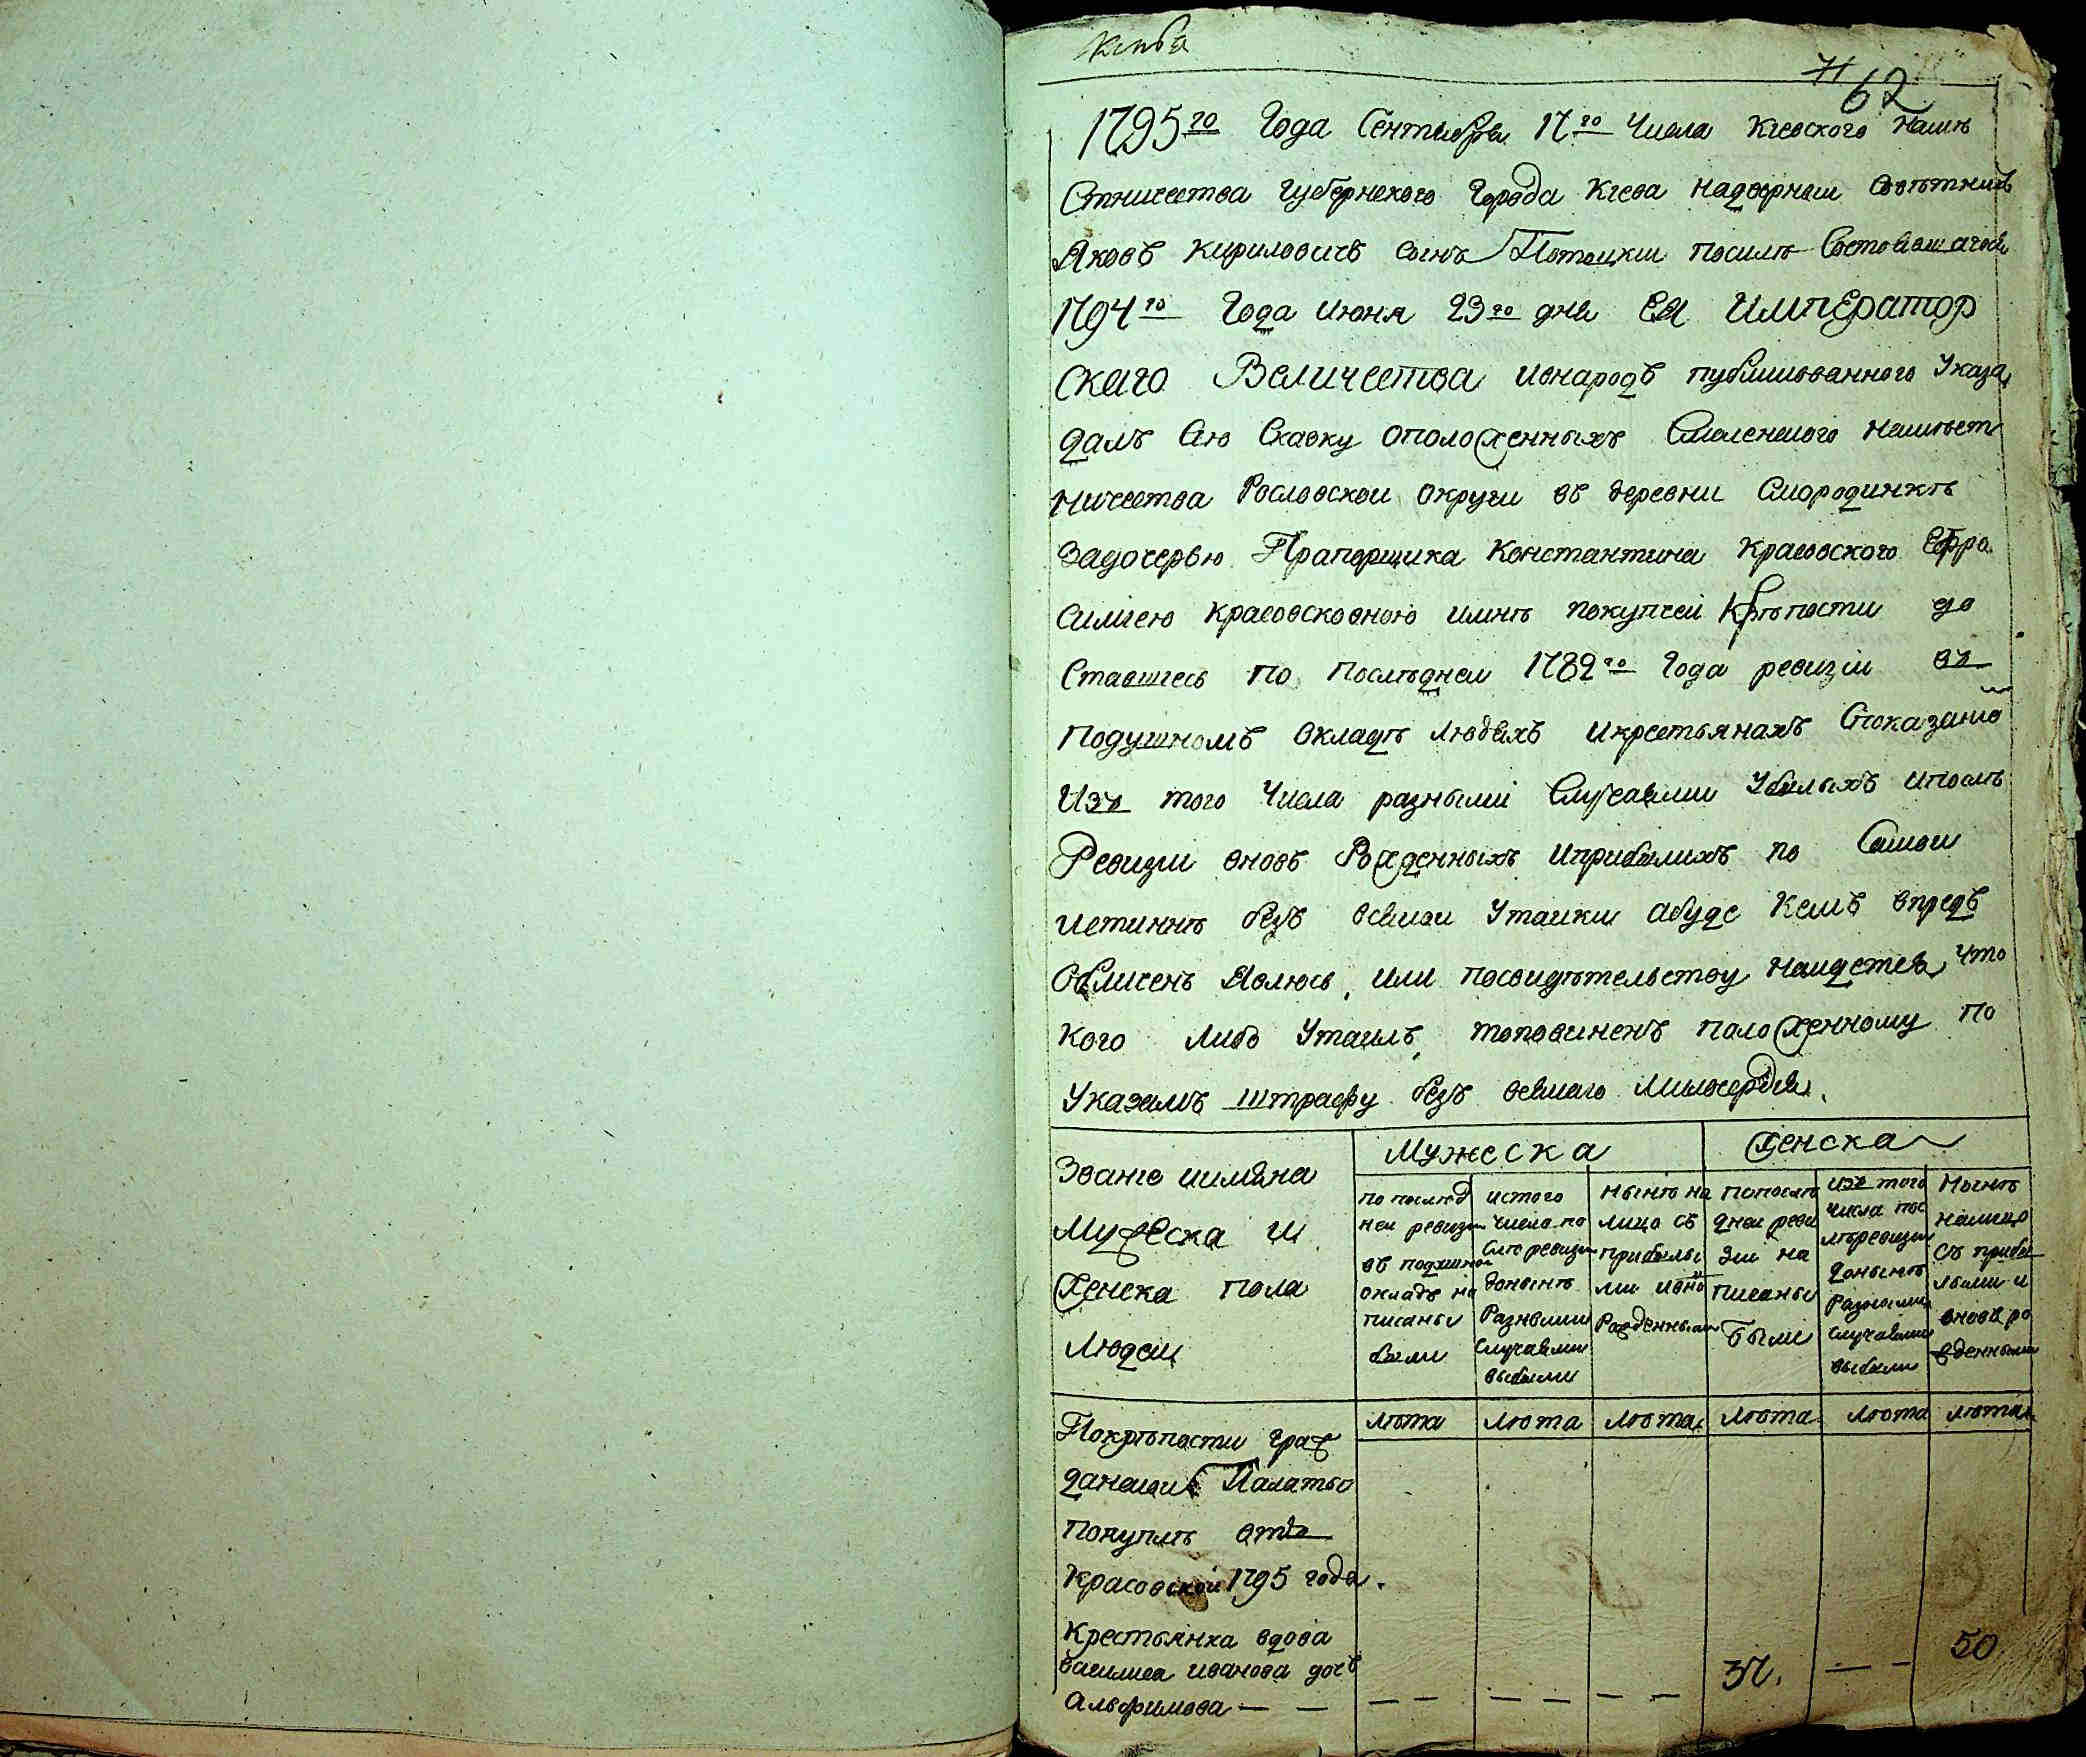 71
62
1795го Года Сентября 17го Числа Киевского Намѣ
Стничества Губернскаго Города Киева надворнои Совѣтникъ
Яковъ Кириловичъ Сынъ Потоцкии посилѣ Состоявшагося
1794го Года Июня 23го дня ЕЯ ИМПЕРАТОР
СКАГО Величества ивнародъ публикованного Указа
далъ Сию Скаску оположенныхъ Смоленского намѣст
ничества Рославской округи въ деревни Смородинкѣ
Задочерью Прапорщика Константина Красовского Ефро
Симиею Красовсковною имнѣ покупчеи Крѣпости до
Ставшиесь по послѣднеи 1782го Года ревизии въ
подушномъ окладѣ людяхъ икрестьянахъ Споказание
Изъ того Числа разными Случаями Убылыхъ ипослѣ
Ревизии вновь Рожденныхъ иприбылихъ по Самои
истиннѣ безъ всякои Утаики абуде Кемъ впредъ
Обличенъ Явлюсь, или посвидѣтельству наидется что
кого либо Утаилъ, топовиненъ положенному по
Указамъ штрафу безъ всякаго Милосердия.
Звание иимяна
Мужеска и
Женска пола
Людеи
Мужеска
Женска
по послѣд
неи ревизии
въ подушном
окладъ на
писаны
были
истого
числа по
слѣ ревизии
донынѣ
Разными
Случаями
выбыли
нынѣ на
лицо съ
прибылы
ми ивно
Рожденными
Попослѣ
днеи реви
зии на
писаны
Были
изъ того
числа пос
лѣревизии
донынѣ
Разными
случаями
выбыли
Нынѣ
налицо
съ прибы
лыми и
вновь ро
жденными
лѣта лѣта лѣта лѣта лѣта лѣта
Покрѣпости граж
данскои Палаты
покуплѣ отъ
Красовской 1795 года.
Крестьянка вдова
василиса иванова дочь
Альфимова — — — — — — — — — 37. — — 50